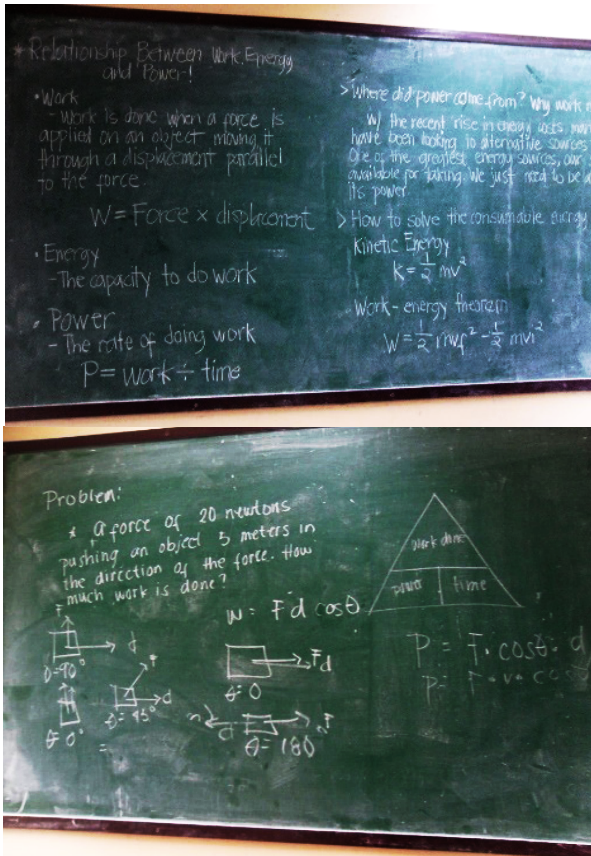 * Relationship Between Work, Energy
and Power!
• Work
- Work is done when a force is
applied on an object moving it
through a displacement parallel
to the force.
W = Force × displacement
• Energy
- The capacity to do work
• Power
- The rate of doing work
P = work ÷ time
> Where did power come from? Why work
w/ the recent rise in energy costs
have been looking to alternative sources
One of the greatest energy sources, our
available for taking. We just need to be
its power.
> How to solve the consumable energy
Kinetic Energy
k = 1/2 mv²
Work - energy theorem
W = 1/2 mvf² - 1/2 mvi²
Problem:
* A force of 20 newtons
pushing an object 5 meters in
the direction of the force. How
much work is done?
W = F d cosθ
F
d
θ=90°
F
d
θ=45°
θ=0°
=
F d
θ=0
d
F
θ=180
work done
power
time
P = F · cosθ · d
P = F · v · cos